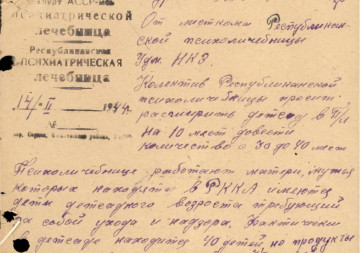 АССР
Психиатрической
лечебница
Республиканская
ПСИХИАТРИЧЕСКАЯ
лечебница
17/-II 1944 г.
№
От месткома Республикан-
ской психолечебницы
Удм. НКЗ.
Колектив Республиканской
психолечебницы просит
расширить детсад в
на 10 мест довести
количество с 30 до 40 мест
Психолечебнице работают матери, мужья
которых находятся в РККА имеются
дети детсадкого возроста требующий
за собой ухода и надзора. Фактически
в детсаде находится 40 детей, но продукты